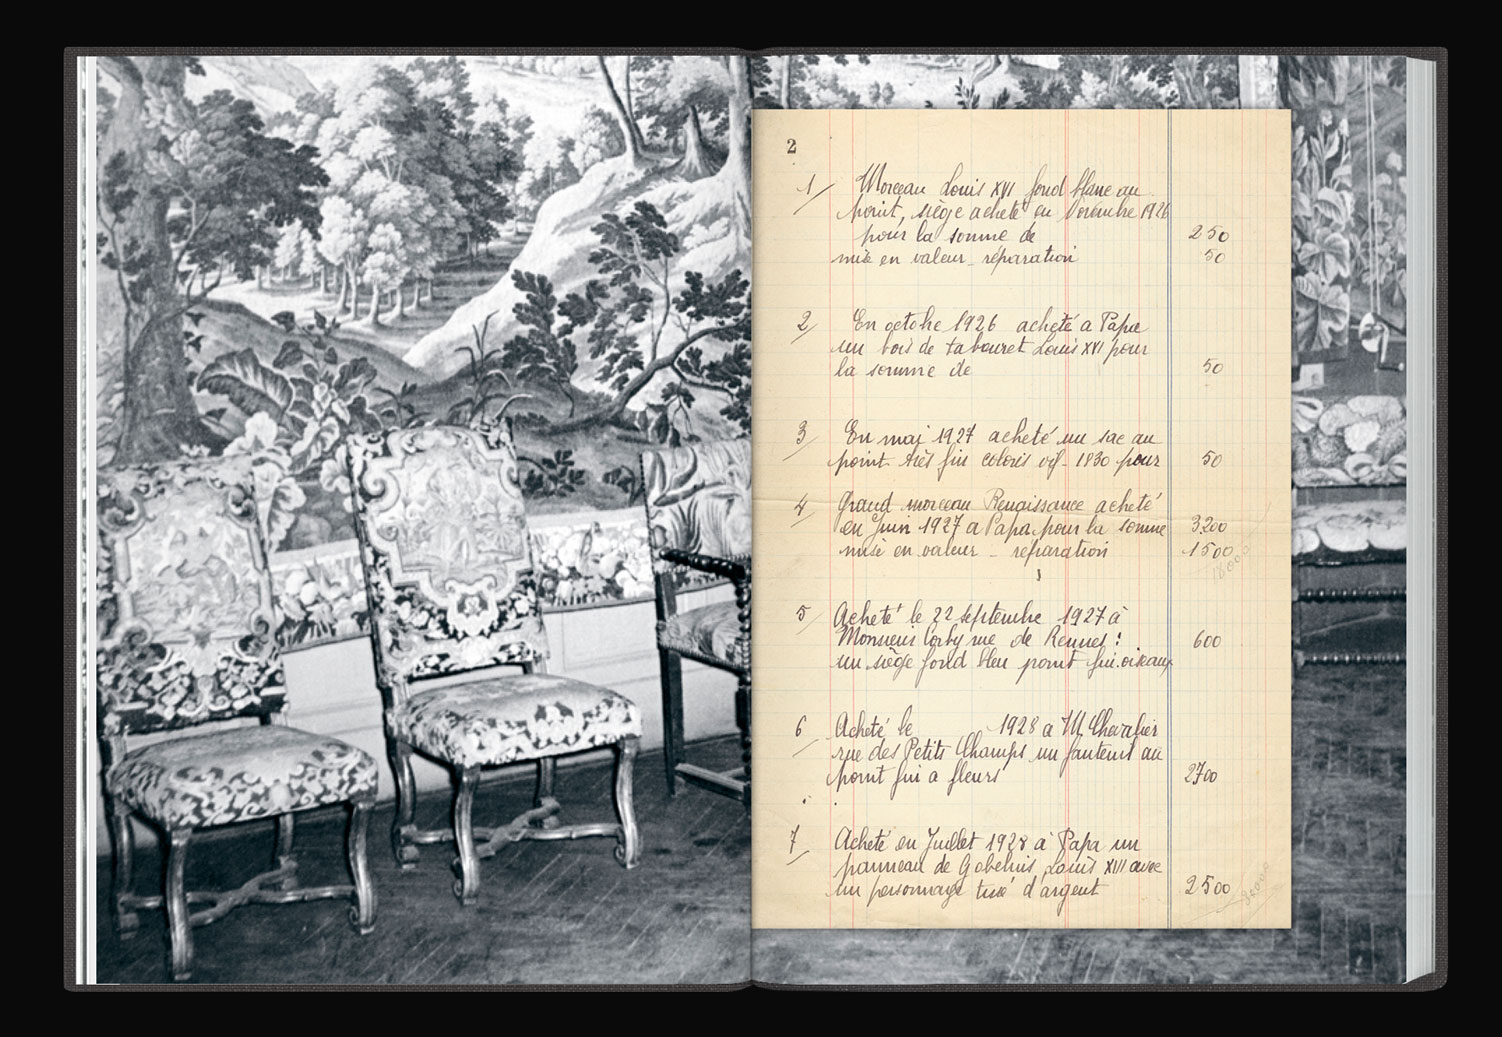 2
1/ Morceau Louis XVI fond blanc au
point, siège acheté en Novembre 1926
pour la somme de 250
mise en valeur - réparation 50
2/ En octobre 1926 acheté a Papa
un bois de tabouret Louis XVI pour
la somme de 50
3/ En mai 1927 acheté un sac au
point très fin coloris vif - 1830 pour 50
4/ Grand morceau Renaissance acheté
en Juin 1927 a Papa pour la somme 3200
mise en valeur - réparation 1500
5/ Acheté le 22 septembre 1927 à
Monsieur rue de Rennes : 600
un siège fond bleu point fin oiseaux
6/ Acheté le 1928 a M Chevalier
rue des Petits Champs un fauteuil au
point fin a fleurs 2700
7/ Acheté en Juillet 1928 à Papa un
panneau de Gobelins Louis XIII avec
un personnage tissé d'argent 2500